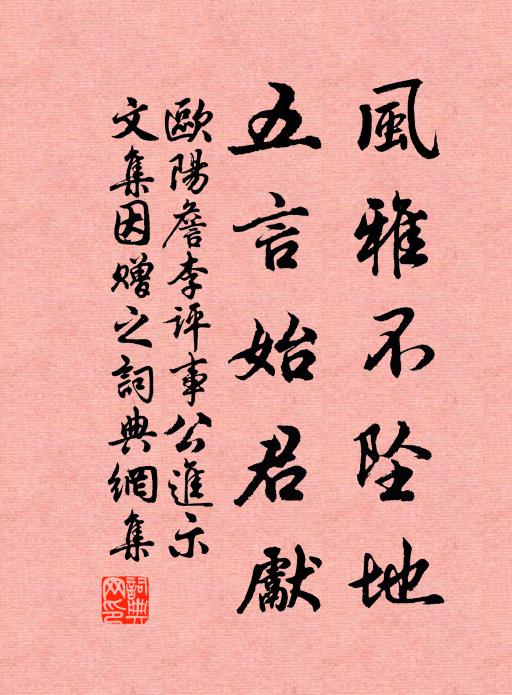 風雅不墜地
五言始君獻
歐陽詹李評事公進示
文集因贈之詞典網集